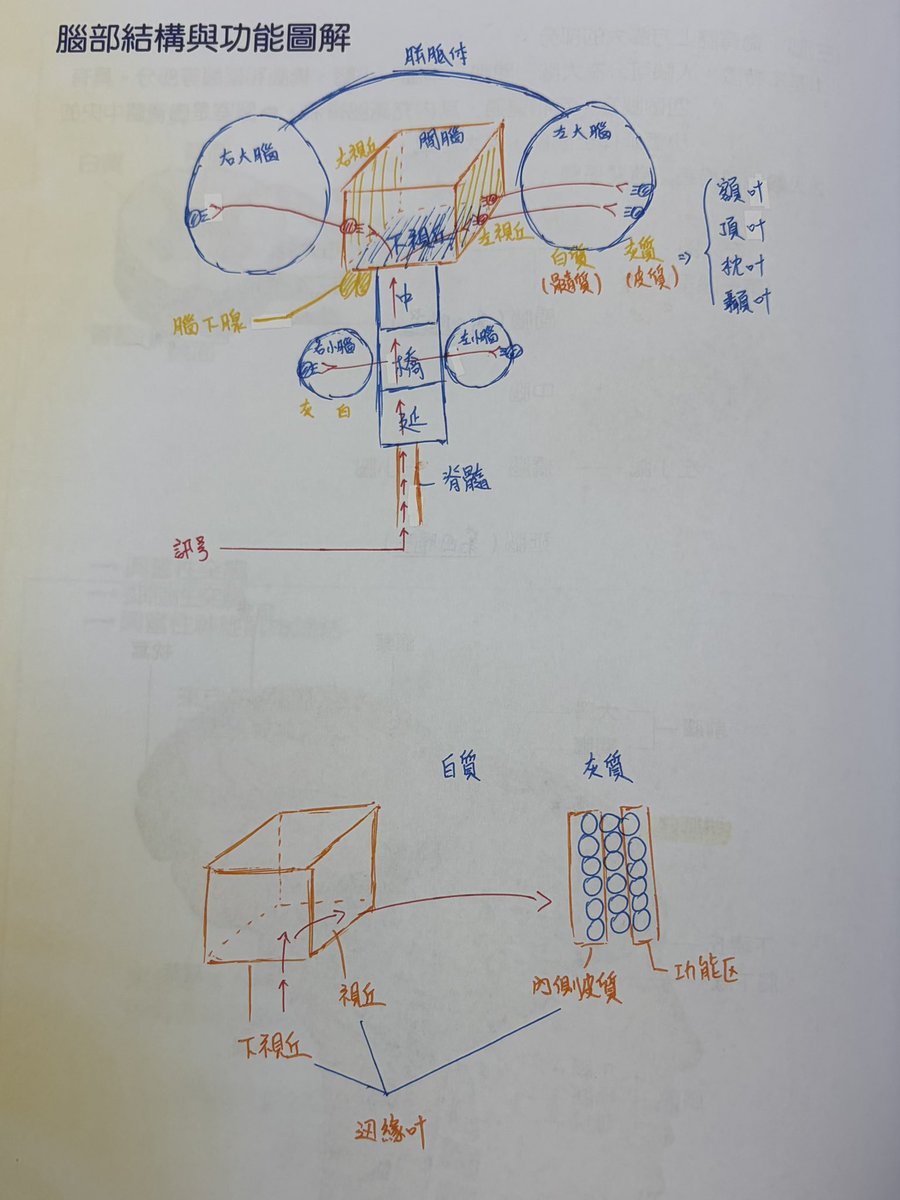 腦部結構與功能圖解
胼胝体
右大腦
右視丘
間腦
左大腦
下視丘
左視丘
白質
(髓質)
灰质
(皮質)
⇒
額叶
頂叶
枕叶
顳叶
腦下腺
中
右小腦
橋
左小腦
灰 白
延
脊髓
訊号
白質
灰质
內側皮質
功能区
視丘
下視丘
边緣叶